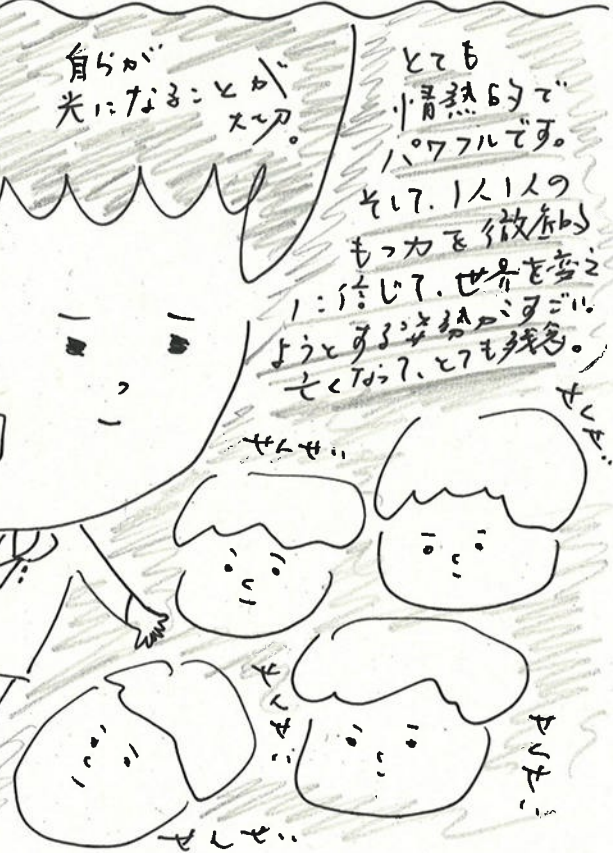 自らが
光になることが
大切。
とても
情熱的で
パワフルです。
そして、1人1人の
もつ力を徹底的
に信じて、世界を変え
ようとする姿勢がすごい。
亡くなって、とても残念。
せんせい
せんせい
せんせい
せんせい
せんせい